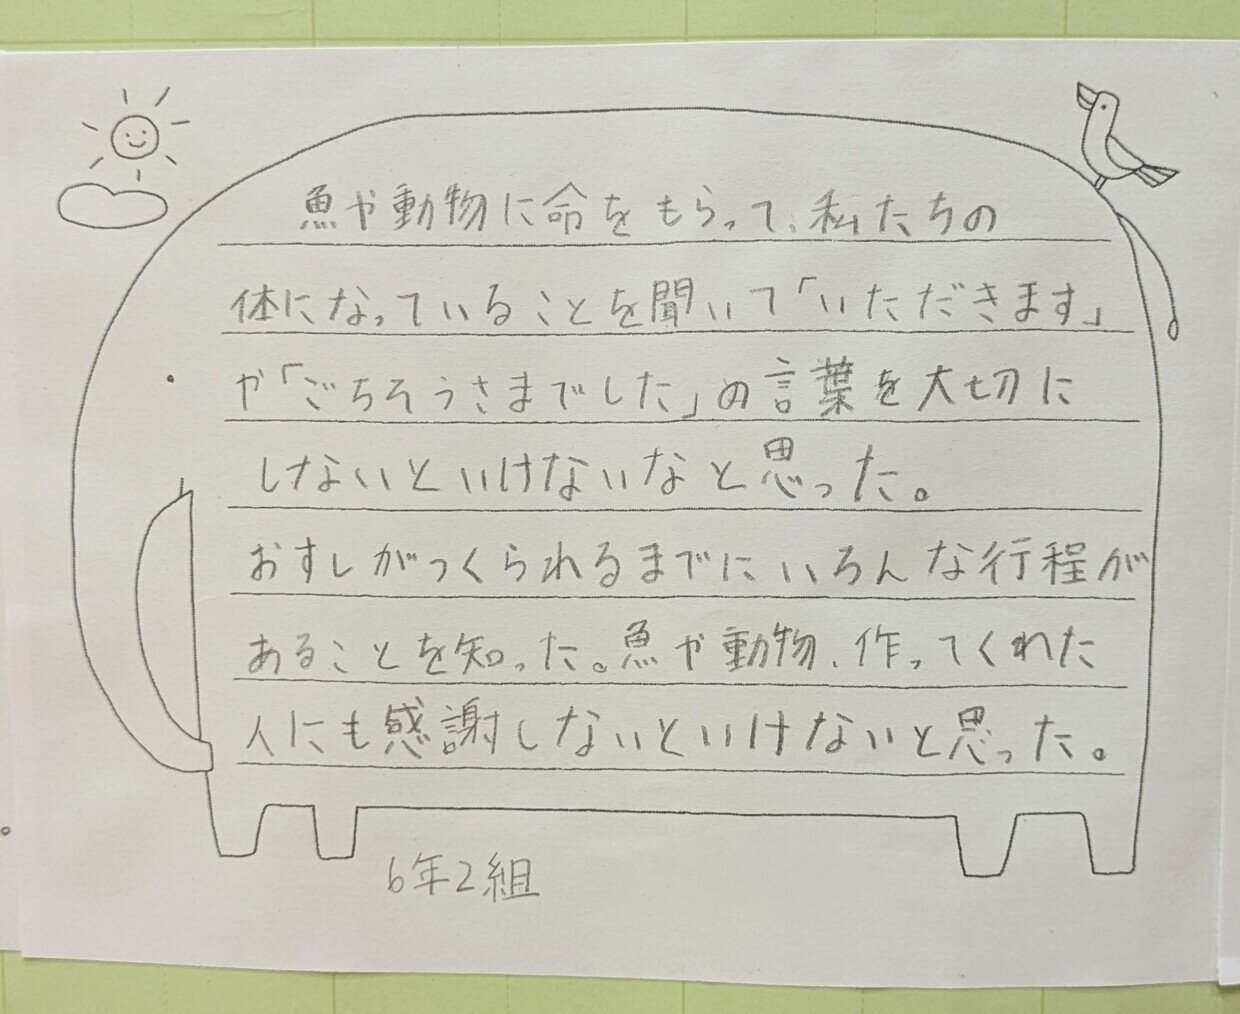 魚や動物に命をもらって、私たちの
体になっていることを聞いて「いただきます」
や「ごちそうさまでした」の言葉を大切に
しないといけないなと思った。
おすしがつくられるまでにいろんな行程が
あることを知った。魚や動物、作ってくれた
人にも感謝しないといけないと思った。
6年2組